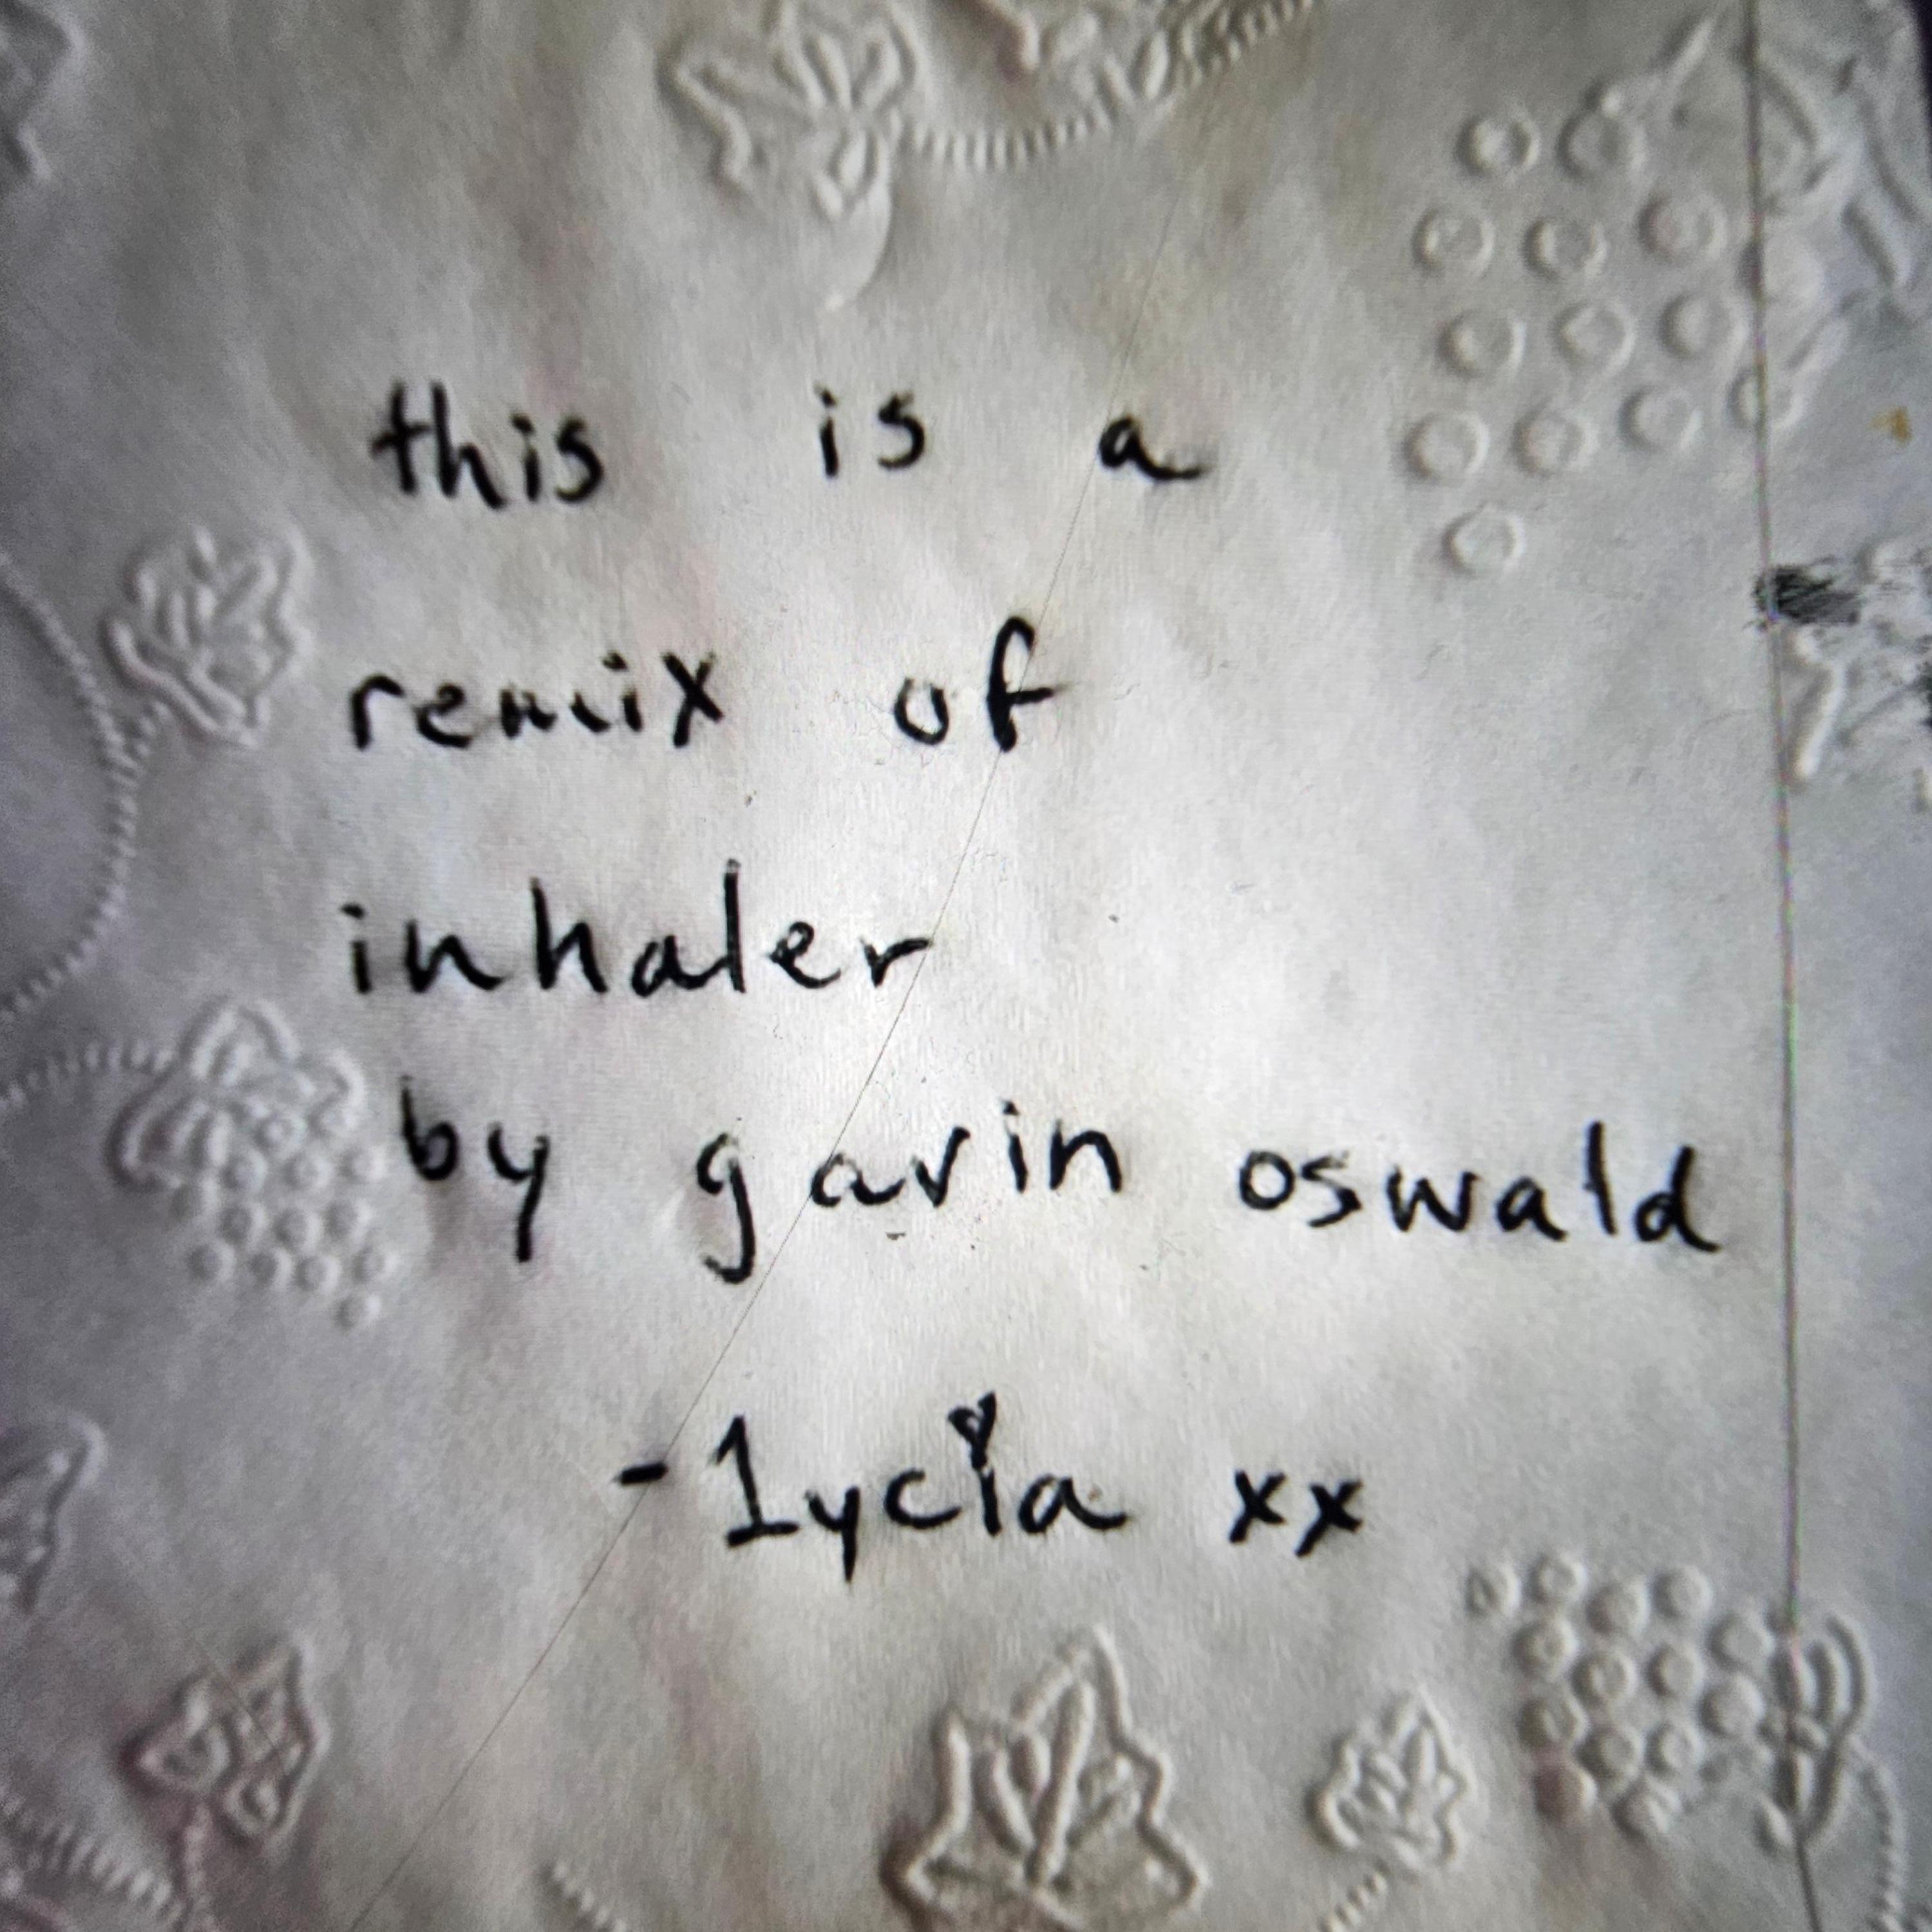 this is a
remix of
inhaler
by gavin oswald
-lycia xx